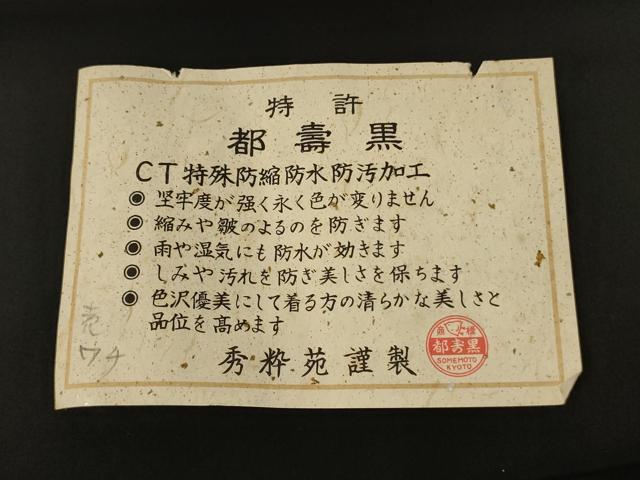 特許
都壽黒
CT特殊防縮防水防汚加工
◉ 坚牢度が强く永く色が変りません
◉ 縮みや皺のよるのを防ぎます
◉ 雨や湿気にも防水が効きます
◉ しみや汚れを防ぎ美しさを保ちます
◉ 色沢優美にして着る方の清らかな美しさと
品位を髙めます
秀粋苑謹製
商標
都壽黒
SOMEMOTO
KYOTO